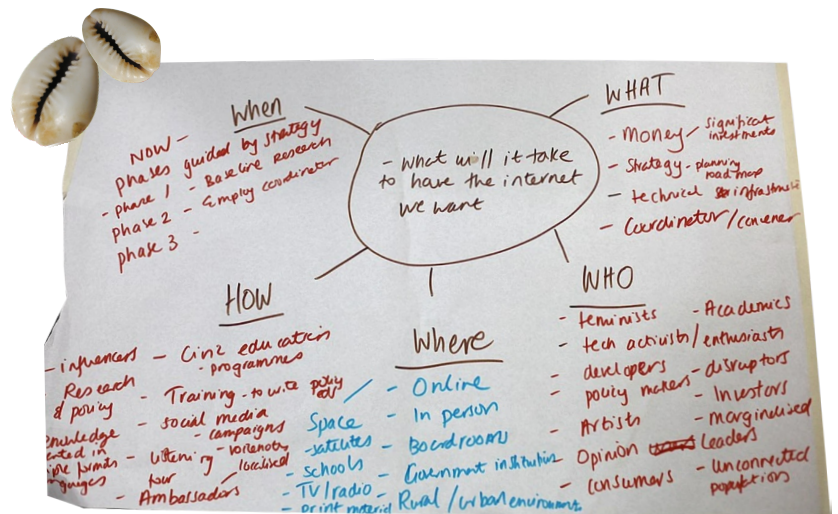 - What will it take
to have the internet
we want
When
NOW -
phases guided by strategy
- phase 1 - Baseline Research
phase 2 - Employ coordinator
phase 3 -
WHAT
- Money / significant
investments
- Strategy - planning
road map
- technical
- Coordinator / convener
HOW
- influencers
Research
& policy
- Civic education
- programmes
- Training - to write policy
- social media
- campaigns
- listening
tour
- localised
- Ambassadors
Where
- Online
- In person
- Boardrooms
- Government institutions
- Rural / urban environments
Space
- satelites
- schools
- TV/radio
- print material
WHO
- feminists
- tech activists / enthusiasts
- developers
- policy makers
- Artists
- Opinion leaders
- consumers
- Academics
- disruptors
- Investors
- marginalised
- unconnected
populations